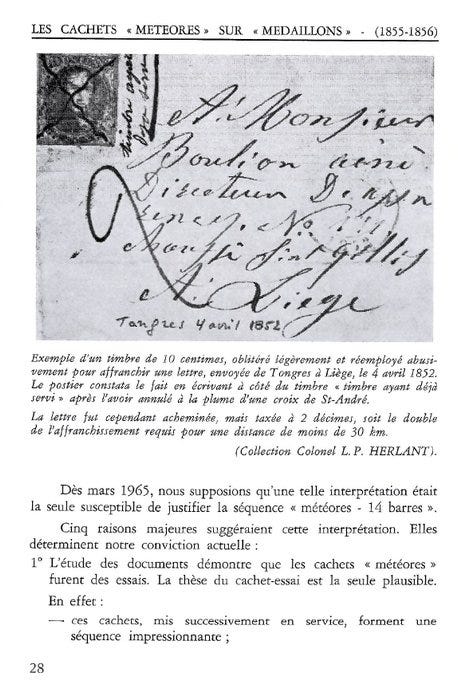 LES CACHETS « METEORES » SUR « MEDAILLONS » - (1855-1856)
timbre ayant
Déja servi
A Monsieur
Boulion ainé
Directeur
A Liege
Tongres 4 avril 1852
Exemple d'un timbre de 10 centimes, oblitéré légèrement et réemployé abusi-
vement pour affranchir une lettre, envoyée de Tongres à Liège, le 4 avril 1852.
Le postier constata le fait en écrivant à côté du timbre « timbre ayant déjà
servi » après l'avoir annulé à la plume d'une croix de St-André.
La lettre fut cependant acheminée, mais taxée à 2 décimes, soit le double
de l'affranchissement requis pour une distance de moins de 30 km.
(Collection Colonel L. P. HERLANT).
Dès mars 1965, nous supposions qu'une telle interprétation était
la seule susceptible de justifier la séquence « météores - 14 barres ».
Cinq raisons majeures suggéraient cette interprétation. Elles
déterminent notre conviction actuelle :
1° L'étude des documents démontre que les cachets « météores »
furent des essais. La thèse du cachet-essai est la seule plausible.
En effet :
— ces cachets, mis successivement en service, forment une
séquence impressionnante ;
28